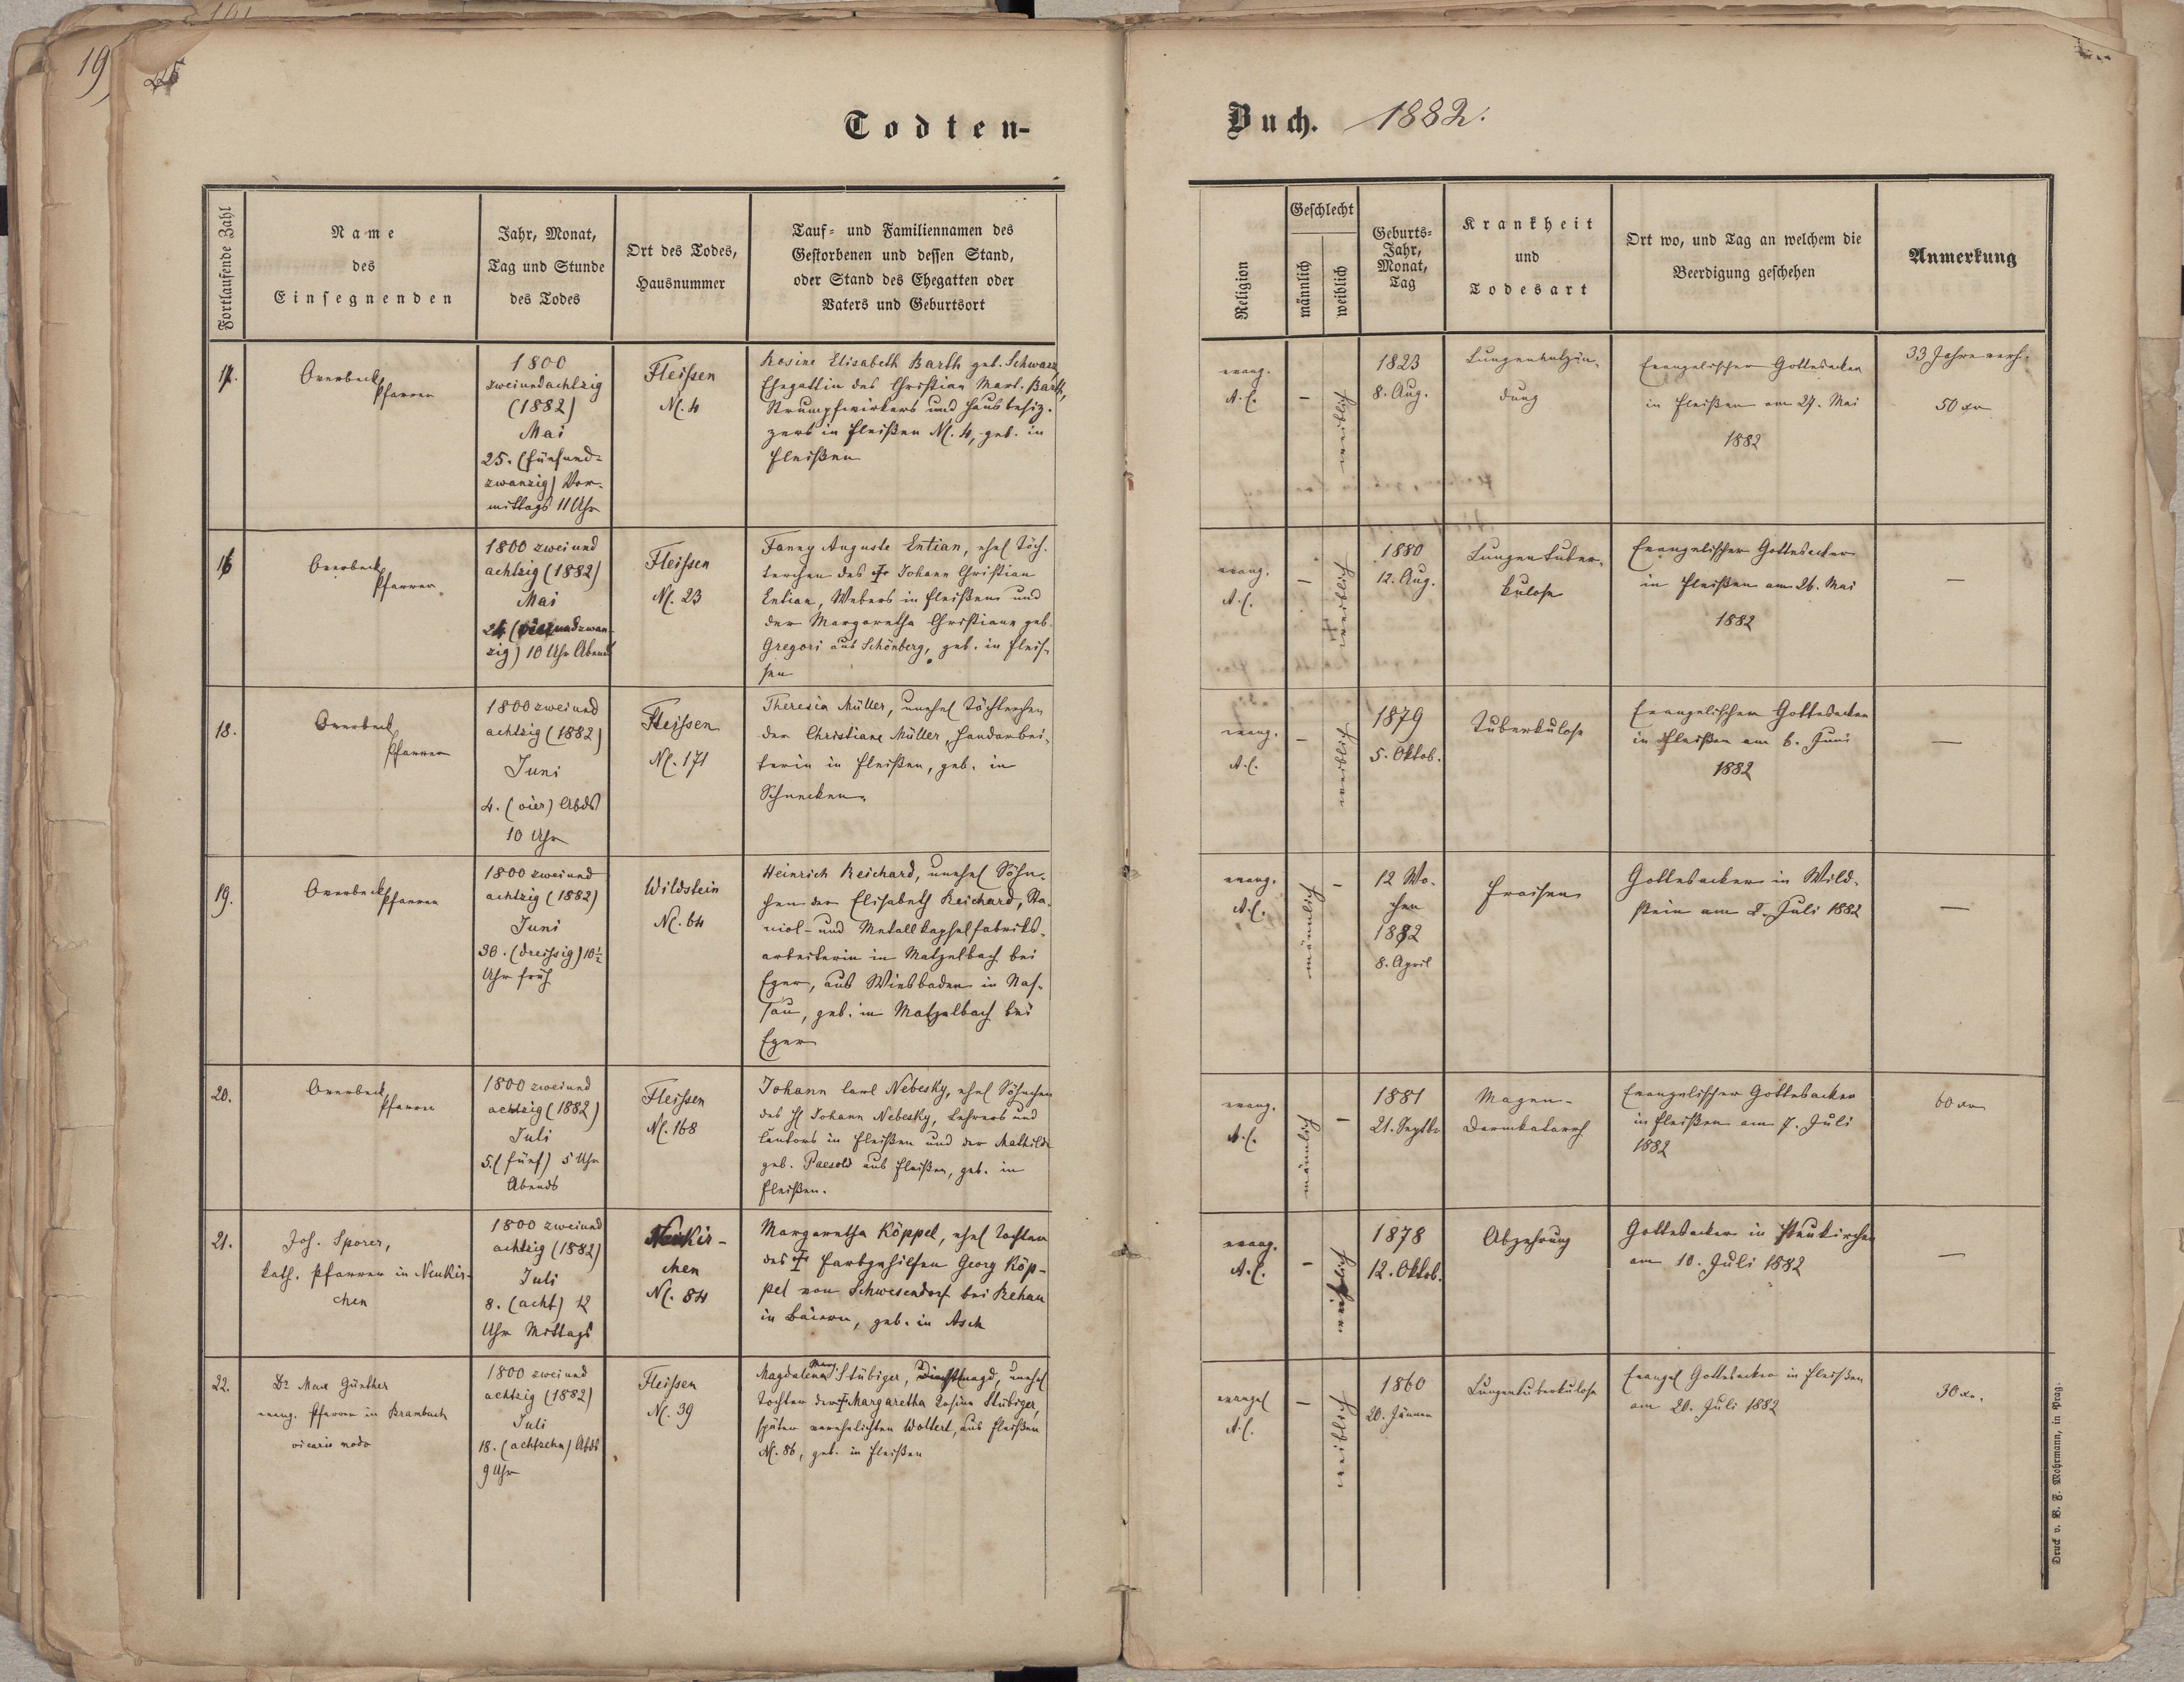 19
225
Todten-
Fortlaufende Zahl
Name
des
Einsegnenden
Jahr, Monat,
Tag und Stunde
des Todes
Ort des Todes,
Hausnummer
Tauf- und Familiennamen des
Gestorbenen und dessen Stand,
oder Stand des Ehegatten oder
Vaters und Geburtsort
17.
Overbeck
Pfarrer
1800
zweiundachtzig
(1882)
Mai
25. (fünfund-
zwanzig) Vor-
mittags 11 Uhr
Fleißen
N. 4
Rosine Elisabeth Barth geb. Schwarz,
Ehegattin des Christian Mart. Barth,
Strumpfwirkers und Hausbesiz-
zers in Fleißen N. 4, geb. in
Fleißen
16
Overbeck
Pfarrer
1800 zweiund
achtzig (1882)
Mai
24 (vierundzwan-
zig) 10 Uhr Abends
Fleißen
N. 23
Fanny Auguste Entian, ehel Töch-
terchen des † Johann Christian
Entian, Webers in Fleißen und
der Margaretha Christiane geb.
Gregori aus Schönberg, geb. in Fleis-
sen
18.
Overbeck
Pfarrer
1800 zweiund
achtzig (1882)
Juni
4. (vier) Abds
10 Uhr
Fleißen
N. 171
Theresia Müller, unehel Töchterchen
der Christiane Müller, Handarbei-
terin in Fleißen, geb. in
Schnecken.
19.
Overbeck Pfarrer
1800 zweiund
achtzig (1882)
Juni
30. (dreißig) 10½
Uhr früh
Wildstein
N. 64
Heinrich Reichard, unehel Söhn-
chen der Elisabeth Reichard, Sta-
niol- und Metallkapselfabriks-
arbeiterin in Matzelbach bei
Eger, aus Wiesbaden in Nas-
sau, geb. in Matzelbach bei
Eger
20.
Overbeck
Pfarrer
1800 zweiund
achtzig (1882)
Juli
5. (fünf) 5 Uhr
Abends
Fleißen
N. 168
Johann Carl Nebesky, ehel Söhnchen
des H Johann Nebesky, Lehrers und
Cantors in Fleißen und der Mathilde
geb. Paesold aus Fleißen, geb. in
Fleißen.
21.
Joh. Sporer,
kath. Pfarrer in Neukir-
chen
1800 zweiund
achtzig (1882)
Juli
8. (acht) 12
Uhr Mittags
Neukir-
chen
N. 84
Margaretha Köppel, ehel Tochter
des † Farbgehilfen Georg Köp-
pel von Schwesendorf bei Rehau
in Baiern, geb. in Asch
22.
Dr Max Günther
evang. Pfarrer in Brambach
vicario modo
1800 zweiund
achtzig (1882)
Juli
18. (achtzehn) Abds
9 Uhr
Fleißen
N. 39
Magdalena Marg. Stübiger, Dienstmagd, unehel
Tochter der † Margaretha Rosina Stübiger,
später verehelichten Wollert, aus Fleißen
N. 86, geb. in Fleißen
Buch. 1882.
Religion
Geschlecht
männlich
weiblich
Geburts-
Jahr,
Monat,
Tag
Krankheit
und
Todesart
Ort wo, und Tag an welchem die
Beerdigung geschehen
Anmerkung
evang.
A. C.
–
weiblich
1823
8. Aug.
Lungenentzün-
dung
Evangelischer Gottesacker
in Fleißen am 27. Mai
1882
33 Jahre verh.
50 xr
evang.
A. C.
–
weiblich
1880
12. Aug.
Lungentuber-
kulose
Evangelischer Gottesacker
in Fleißen am 26. Mai
1882
—
evang.
A. C.
–
weiblich
1879
5. Oktob.
Tuberkulose
Evangelischer Gottesacker
in Fleißen am 6. Juni
1882
—
evang.
A. C.
männlich
–
12 Wo-
chen
1882
8. April
Fraisen
Gottesacker in Wild-
stein am 2. Juli 1882
—
evang.
A. C.
männlich
–
1881
21. Septbr
Magen-
Darmkatarrh
Evangelischer Gottesacker
in Fleißen am 7. Juli
1882
60 xr
evang.
A. C.
–
weiblich
1878
12. Oktob.
Abzehrung
Gottesacker in Neukirchen
am 10. Juli 1882
—
evangel
A. C.
–
weiblich
1860
20. Jänner
Lungentuberkulose
Evangel Gottesacker in Fleißen
am 20. Juli 1882
30 xr.
Druck v. B. F. Mohrmann, in Prag.